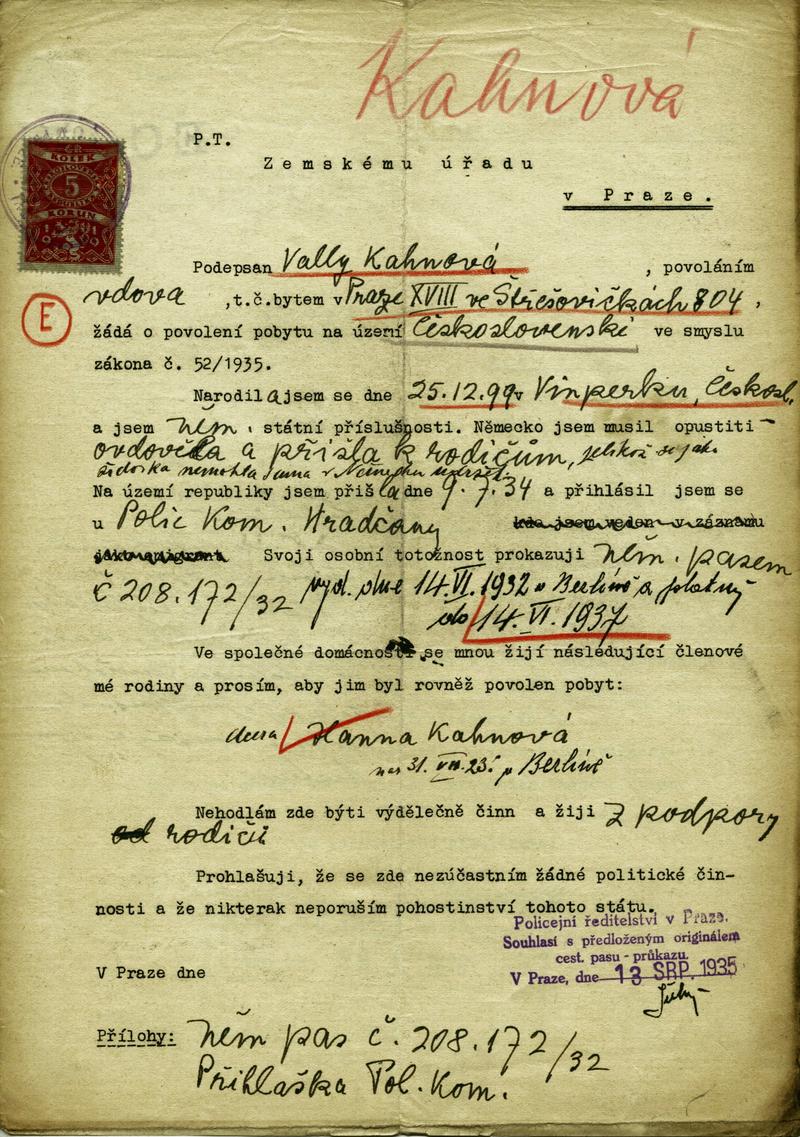 Kahnová
P.T.
Zemskému úřadu
v Praze.
KOLEK
5
KORUN
Podepsan Vally Kahnová , povoláním
vdova ,t.č.bytem v Praze XVIII ve Střešovičkách 804 ,
E
žádá o povolení pobytu na území Československé ve smyslu
zákona č. 52/1935.
Narodila jsem se dne 25.12.99 v Vinperku, Českosl.
a jsem něm. státní příslušnosti. Německo jsem musil opustiti
ovdověla a přišla k rodičům, jelikož se jako
židovka nemohla sama v Německu
Na území republiky jsem přišla dne 9.7.34 a přihlásil jsem se
u Polic Kom. Hradčany kde jsem veden v záznamu
jako emigrant. Svoji osobní totožnost prokazuji něm. pasem
č 208.172/32 vyd. dne 14.VI.1932 v Berlíně a platný
do 14.VI.1937
Ve společné domácnosti se mnou žijí následující členové
mé rodiny a prosím, aby jim byl rovněž povolen pobyt:
dcera Hanna Kahnová
nar 31. VII. 23. v Berlíně
Nehodlám zde býti výdělečně činn a žiji z podpory
od rodičů
Prohlašuji, že se zde nezúčastním žádné politické čin-
nosti a že nikterak neporuším pohostinství tohoto státu.
Policejní ředitelství v Praze.
Souhlasí s předloženým originálem
cest. pasu - průkazu.
V Praze, dne 13 SRP. 1935
V Praze dne
Přílohy: něm pas č. 208.172/32
Přihláška Pol. Kom.